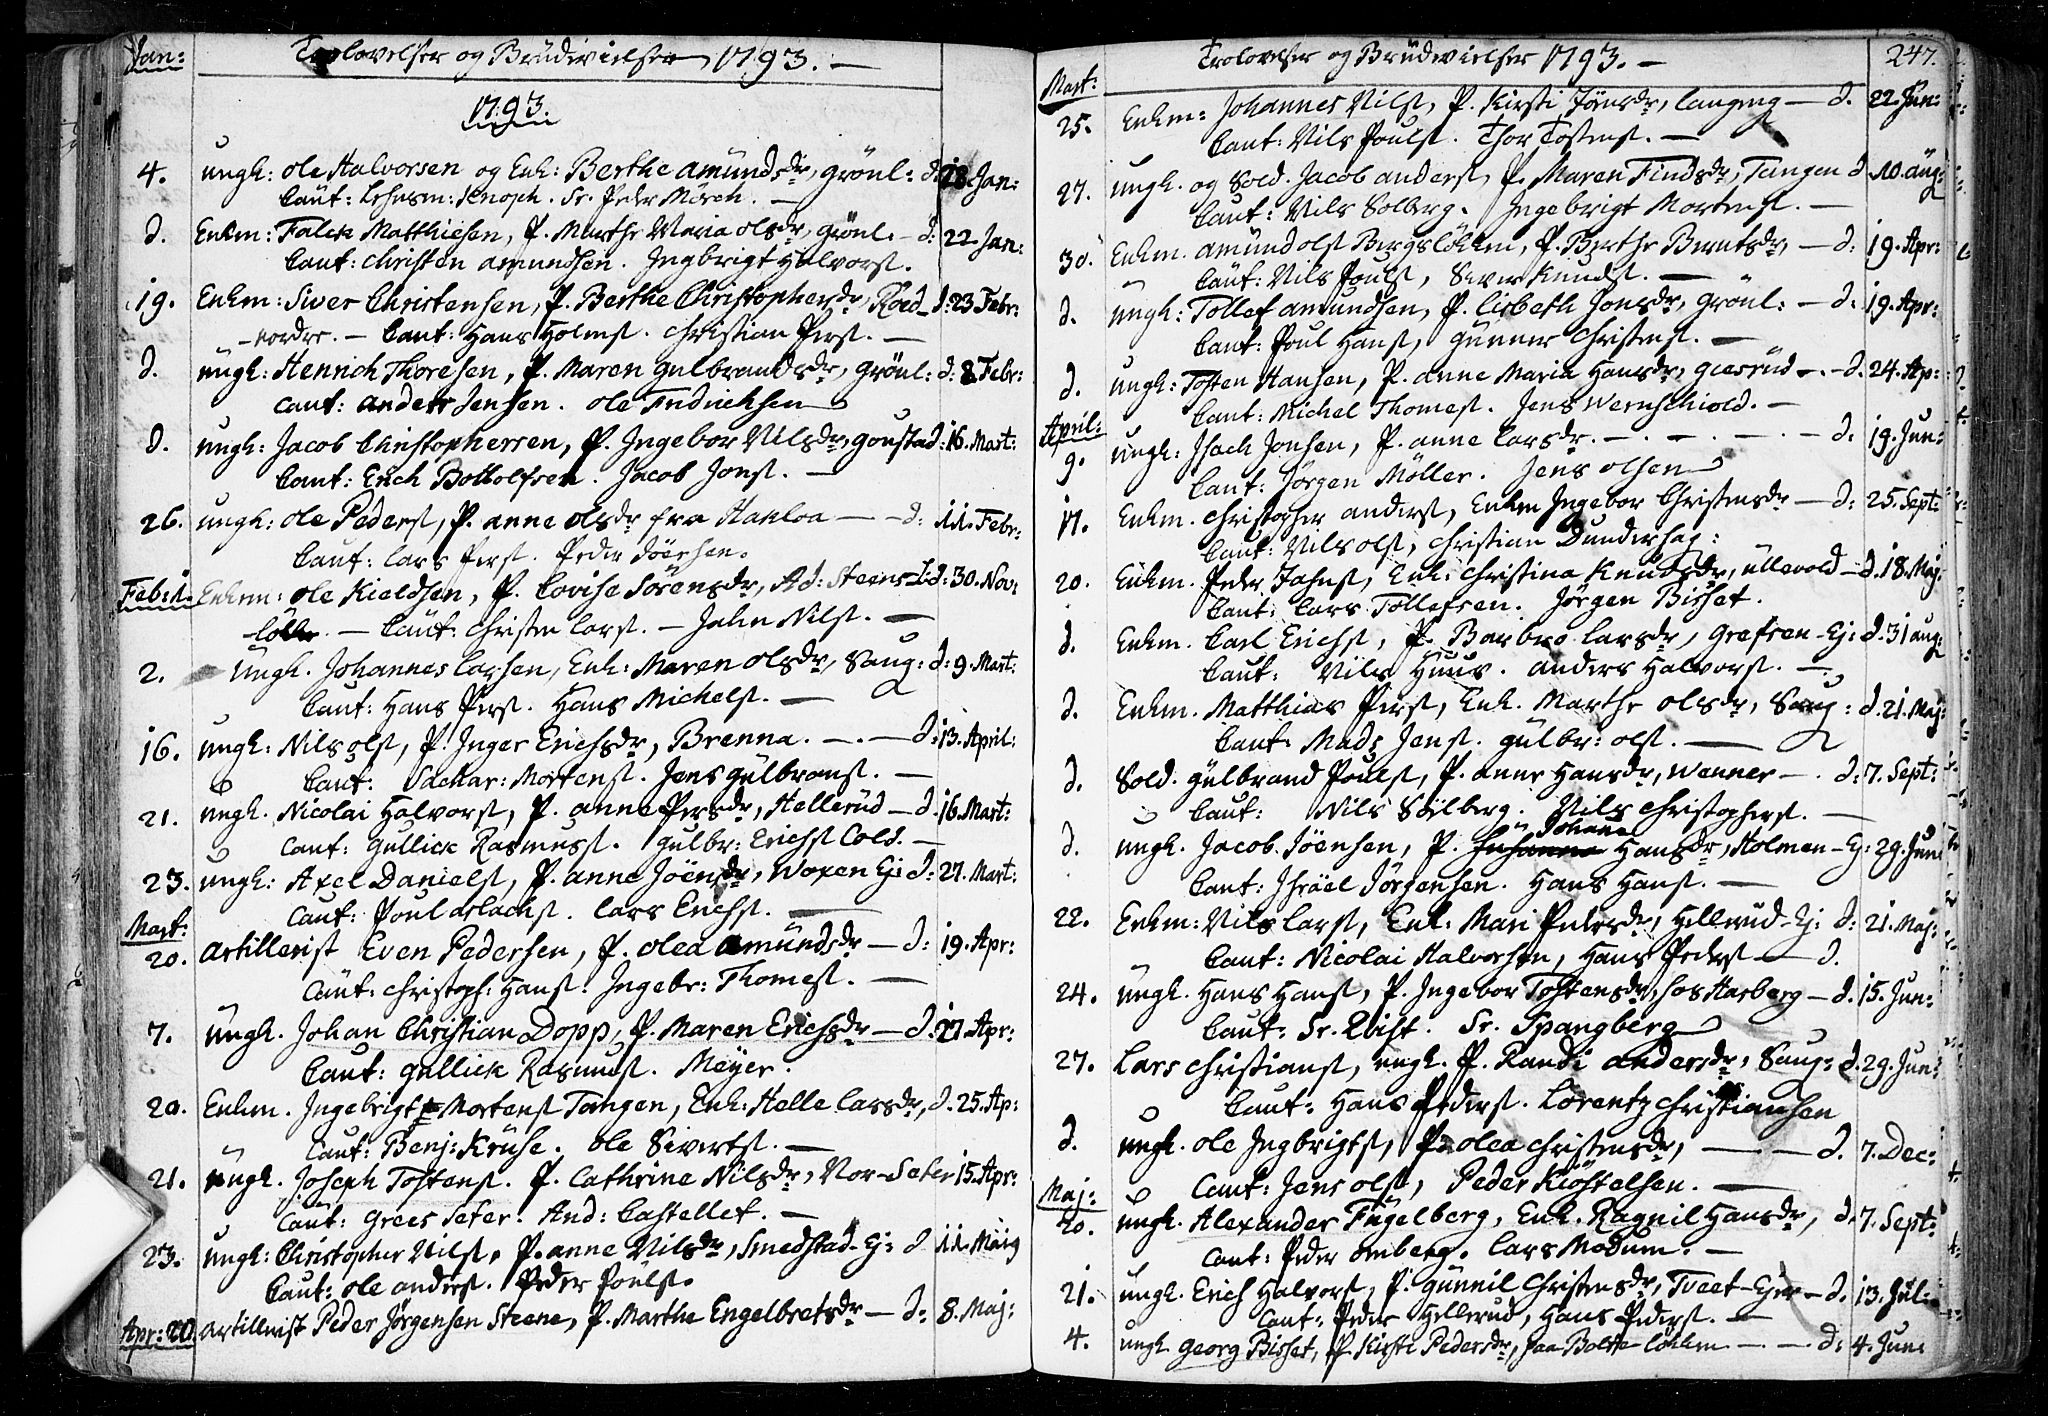 Jan: Trolovelser og Brüdevielser 1793. —
1793.
4. ungk: Ole Halvorsen og Enk: Berthe Amündsdr, Grönl: d. 18 Jan:
Caut: Lehnsm: Senoph. Sr. Peder Mörch. —
d. Enkm: Falck Matthiesen, P. Marthe Maria Olsdr, Grönl. — d: 22. Jan:
Caut: Christen Amundsen. Ingbrigt Halvors.
19. Enkm: Siver Christensen, P. Berthe Christophersdr, Röed d: 23 Febr:
nordre. — Caut: Hans Holmst. Christian Perst. —
d. ungk: Henrich Thoresen, P. Maren Gulbrandsdr, Grönl: d: 8 Febr:
Caut: Anders Jensen. Ole Fridrichsen
d. ungk: Jacob Christophersen, P. Ingebor Nilsdr, Goustad: 16. Mart:
Caut: Erich Bottolfsen. Jacob Jonst. —
26. ungk: Ole Pederst, P. Anne Olsdr fra Hakloa — d: 11. Febr:
Caut: Lars Perst. Peder Jöensen.
Feb: 1. Enkm: Ole Kieldsen, P. Lovise Sörensdr, Ad: Steens-L d: 30. Nov:
lökke. — Caut: Christen Larst. — Jahn Nilst. —
2. Ungk. Johannes Larsen, Enk: Maren Olsdr, Saug: d: 9. Mart:
Caut: Hans Perst. Hans Michelst. —
16. ungk: Nils Olst, P. Inger Erichsdr, Brenna. — d: 13. April:
Caut: Sachar: Mortenst. Jens Gülbranst. —
21. ungk. Nicolai Halvorst, P. Anne Persdr, Hellerüd — d: 16. Mart:
Caut: Gullick Rasmusst. Gulbr: Erichst Cold. —
23. ungk: Axel Danielst, P. Anne Jöensdr, Woxen Ej: d: 27. Mart:
Caut: Poul Aslachst. Lars Erichst. —
Mart:
20. Artillerist Even Pedersen, P. Olea Amündsdr — d: 19. Apr:
Caut: Christoph: Hanst. Ingebr: Thomest. —
7. ungk. Johan Christian Dopp, P. Maren Erichsdr — d. 27. Apr:
Caut: Gullick Rasmust. Meyer.
20. Enkm. Ingebrigt Mortenst Tangen, Enk: Helle Larsdr, d. 25. Ap:
Caut: Benj: Krüse. Ole Sivertst. —
21. ungk. Joseph Tostenst. P. Cathrine Nilsdr, Nor-Seter 15. Apr:
Caut: Grees Seter. And: Castellet. —
23. ungk: Christopher Nilst, P. Anne Nilsdr, Smedstad-Ej: d 11. Maij
Caut: Ole Anderst. Peder Poulst.
Apr: 20. Artillerist Peder Jörgensen Steene, P. Marthe Engelbretsdr — d: 8. Maj:
Trolovelser og Brüdevielser 1793. — 247.
Mart:
25. Enkm: Johannes Nilst, P. Kirsti Jönsdr, Langeng — d. 22. Jun:
Caut: Nils Poulst. Thor Tostenst. —
27. ungk. og Sold. Jacob Anderst, P. Maren Findsdr, Tangen d 10. Aug:
Caut: Nils Solberg. Ingebrigt Mortenst. —
30. Enkm. Amünd Olst Bergslökken, P. Berthe Berntsdr, — d: 19. Apr:
Caut: Nils Poulst, Siver Knudst. —
d. ungk: Tollef Amundsen, P. Lisbeth Jonsdr, Grönl: — d: 19. Apr:
Caut: Poul Hanst, Gunner Christenst. —
d. ungk: Tosten Hansen, P. Anne Maria Hansdr, Giesrüd — d. 24. Ap:
Caut: Michel Thomest. Jens Wernschiold. —
April:
9. ungk: Isach Jonsen, P. Anne Larsdr. — d. 19. Jun:
Caut: Jörgen Möller. Jens Olsen
17. Enkm. Christopher Anderst, Enkm Ingebor Christensdr — d: 25. Sept:
Caut: Nils Olst, Christian Dundershag:
20. Enkm. Peder Jahnst, Enk: Christina Knudsdr, Üllevold — d. 18. Maj:
Caut: Lars Tollefsen. Jörgen Bisset.
d. Enkm. Carl Erichst, P. Barbro Larsdr, Grefsen-Ej: d. 31 Aug:
Caut: Nils Huus. Anders Halvorst. —
d. Enkm. Matthias Perst, Enk. Marthe Olsdr, Saug: d. 21. Maj:
Caut: Mads Jenst. Gülbr: Olst. —
d. Sold. Gülbrand Poulst, P. Anne Hansdr, Wenner — d: 7. Sept:
Caut: Nils Solberg. Nils Christopherst. —
Johane
d. ungk. Jacob Jöensen, P. Johanne Hansdr, Holmen-Ej: 29. Jun:
Caut: Israel Jörgensen. Hans Hanst. —
22. Enkm: Nils Larst, Enk: Mari Pedersdr, Hellerud-Ej: d: 21. Maj:
Caut: Nicolai Halvorsen, Hans Pederst — d.
24. ungk. Hans Hanst, P. Ingebor Tostensdr, hos Aasberg — d. 15. Jun:
Caut: Sr. Qvist. Sr. Spangberg
27. Lars Christianst, ungk. P. Randi Andersdr, Saug: d. 29. Jun:
Caut: Hans Pederst. Lorentz Christiansen
d. ungk. Ole Ingbrigtst, P. Olea Christensdr, — d. 7. Dec:
Caut: Jens Olst, Peder Kiöstelsen. —
Maj:
20. ungk. Alexander Fugelberg, Enk. Ragnil Hansdr, d. 7. Sept:
Caut: Peder Omberg. Lars Modum. —
21. ungk. Erich Halvorst, P. Gunnil Christensdr, Tveet-Ejer — d. 13. Jul:
Caut: Peder Hellerud, Hans Pederst. —
4. ungk. Georg Bisset, P. Kirsti Pedersdr, paa Bolte Lökken — d: 4. Jun: